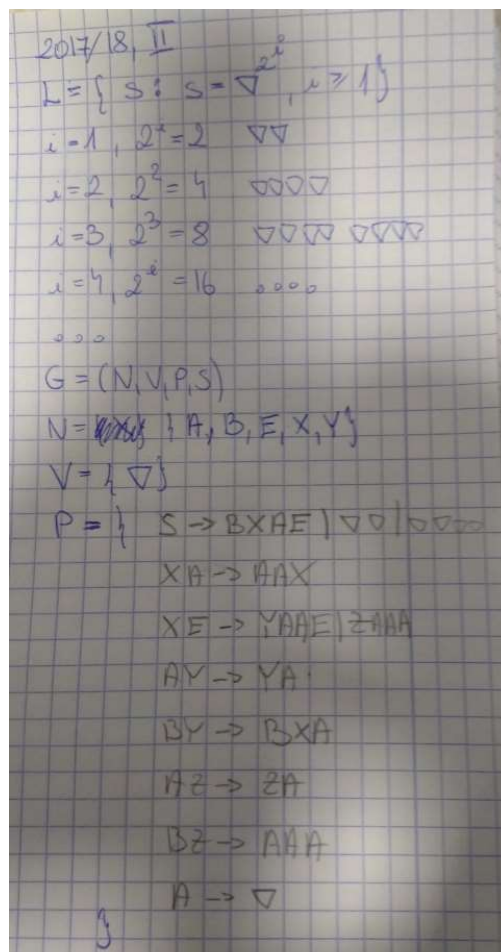 2017/18, II
L = { S : S = ∇^2^i, i ≥ 1 }
i=1, 2^1=2 ∇∇
i=2, 2^2=4 ∇∇∇∇
i=3, 2^3=8 ∇∇∇∇ ∇∇∇∇
i=4, 2^i=16 ∘∘∘∘
∘∘∘
G = (N, V, P, S)
N = { A, B, E, X, Y }
V = { ∇ }
P = { S -> BXAE | ∇∇ | ∇∇∇∇
XA -> AAX
XE -> YAAE | ZAAA
AY -> YA
BY -> BXA
AZ -> ZA
BZ -> AAA
A -> ∇
}